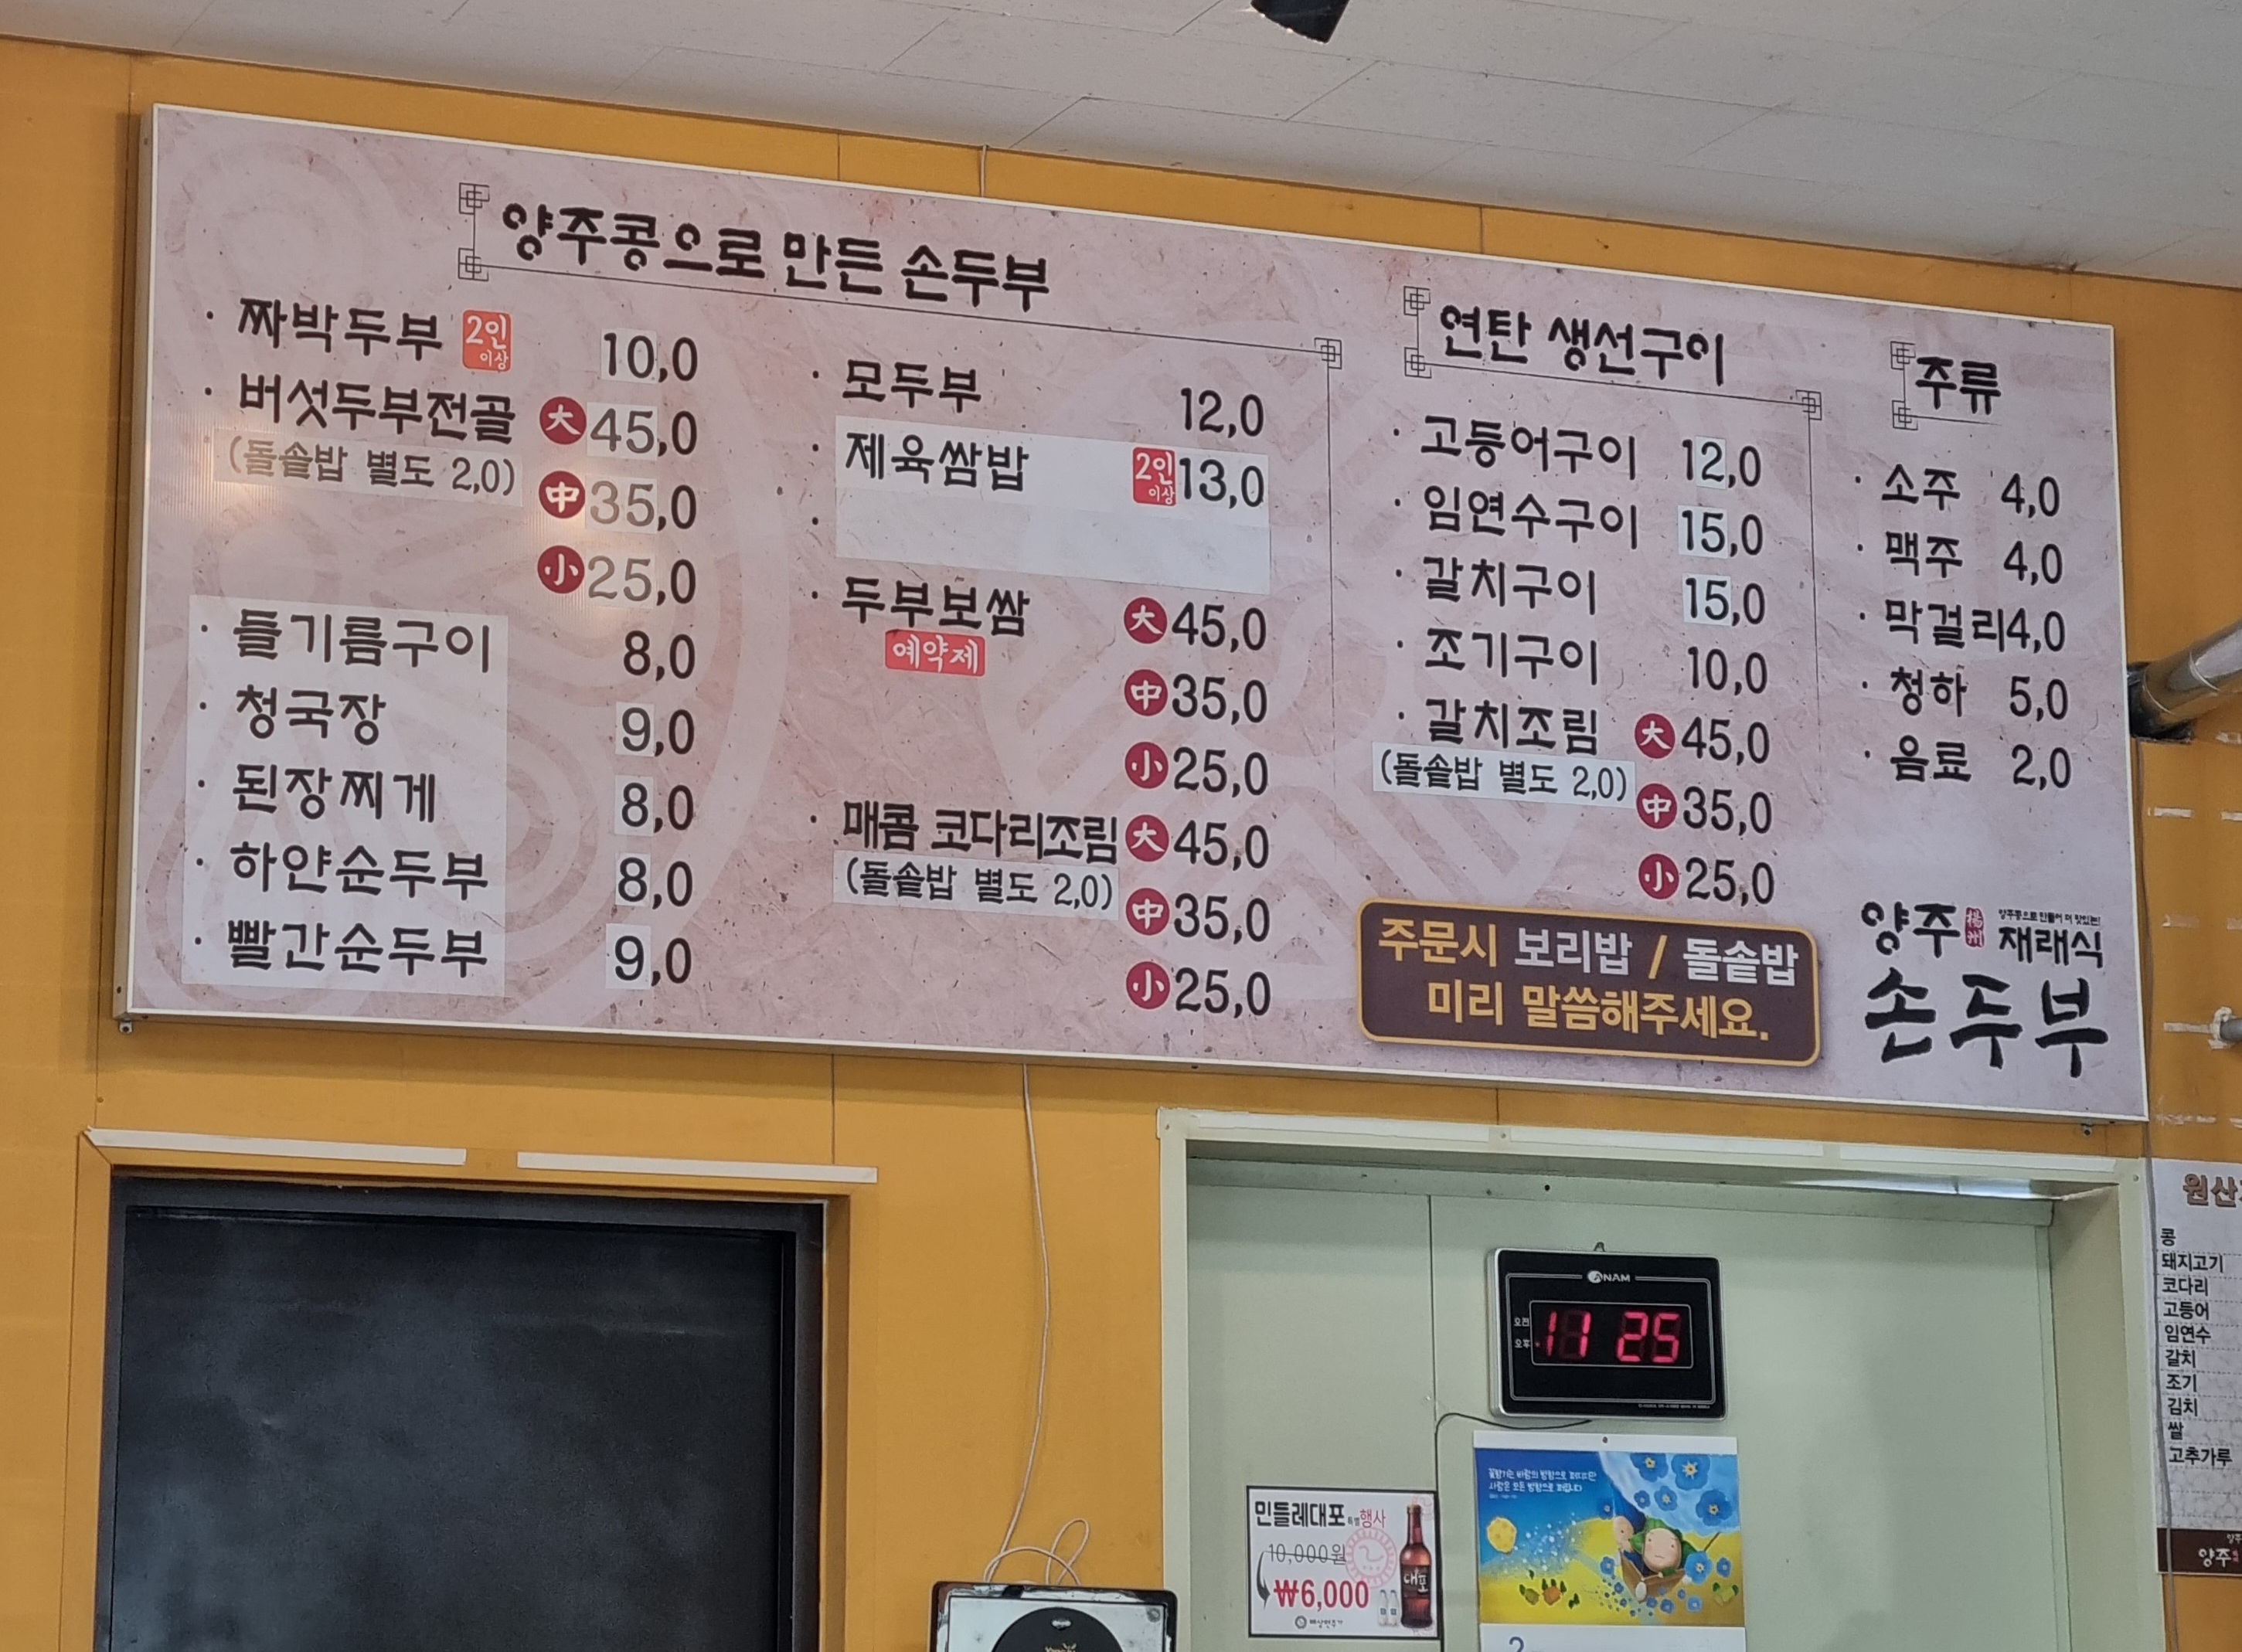 양주콩으로 만든 손두부
· 짜박두부 2인 이상 10,0
· 버섯두부전골 大 45,0
(돌솥밥 별도 2,0) 中 35,0
小 25,0
· 들기름구이 8,0
· 청국장 9,0
· 된장찌게 8,0
· 하얀순두부 8,0
· 빨간순두부 9,0
· 모두부 12,0
· 제육쌈밥 2인 이상 13,0
·
· 두부보쌈 大 45,0
예약제
中 35,0
小 25,0
· 매콤 코다리조림 大 45,0
(돌솥밥 별도 2,0) 中 35,0
小 25,0
연탄 생선구이
· 고등어구이 12,0
· 임연수구이 15,0
· 갈치구이 15,0
· 조기구이 10,0
· 갈치조림 大 45,0
(돌솥밥 별도 2,0) 中 35,0
小 25,0
주문시 보리밥 / 돌솥밥
미리 말씀해주세요.
주류
· 소주 4,0
· 맥주 4,0
· 막걸리 4,0
· 청하 5,0
· 음료 2,0
양주콩으로 만들어 더 맛있는!
양주 楊州 재래식
손두부
원산
콩
돼지고기
코다리
고등어
임연수
갈치
조기
김치
쌀
고추가루
양주
ANAM
오전
오후
11 25
꽃향기는 바람의 방향으로 퍼지지만
사람은 모든 방향으로 퍼집니다
민들레대포 특별행사
10,000원
₩6,000
대포
배상면주가
2